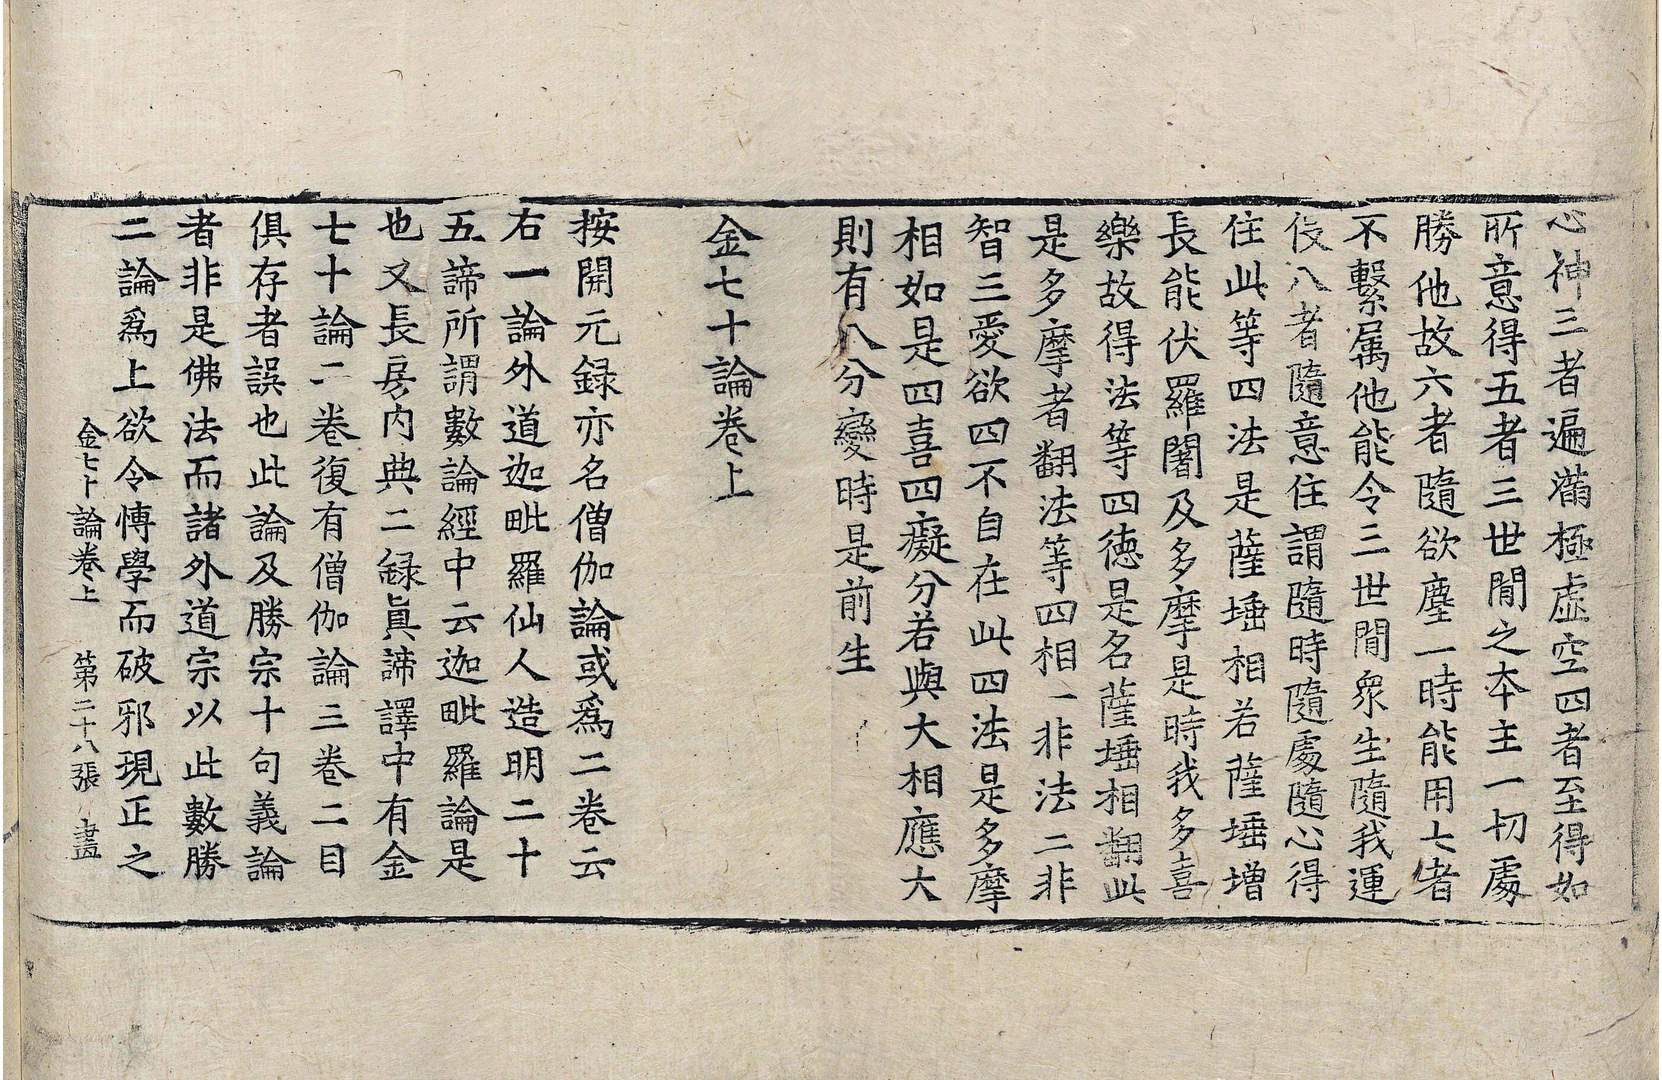 心神三者遍滿極虛空四者至得如
所意得五者三世閒之本主一切處
勝他故六者隨欲塵一時能用七者
不繫属他能令三世閒衆生隨我運
役八者隨意住謂隨時隨處隨心得
住此等四法是薩埵相若薩埵增
長能伏羅闍及多摩是時我多喜
樂故得法等四德是名薩埵相翻此
是多摩者翻法等四相一非法二非
智三愛欲四不自在此四法是多摩
相如是四喜四癡分若與大相應大
則有八分變時是前生
金七十論卷上
按開元録亦名僧伽論或爲二卷云
右一論外道迦毗羅仙人造明二十
五諦所謂數論經中云迦毗羅論是
也又長房内典二録眞諦譯中有金
七十論二卷復有僧伽論三卷二目
俱存者誤也此論及勝宗十句義論
者非是佛法而諸外道宗以此數勝
二論爲上欲令愽學而破邪現正之
金七十論卷上 第二十八張 書